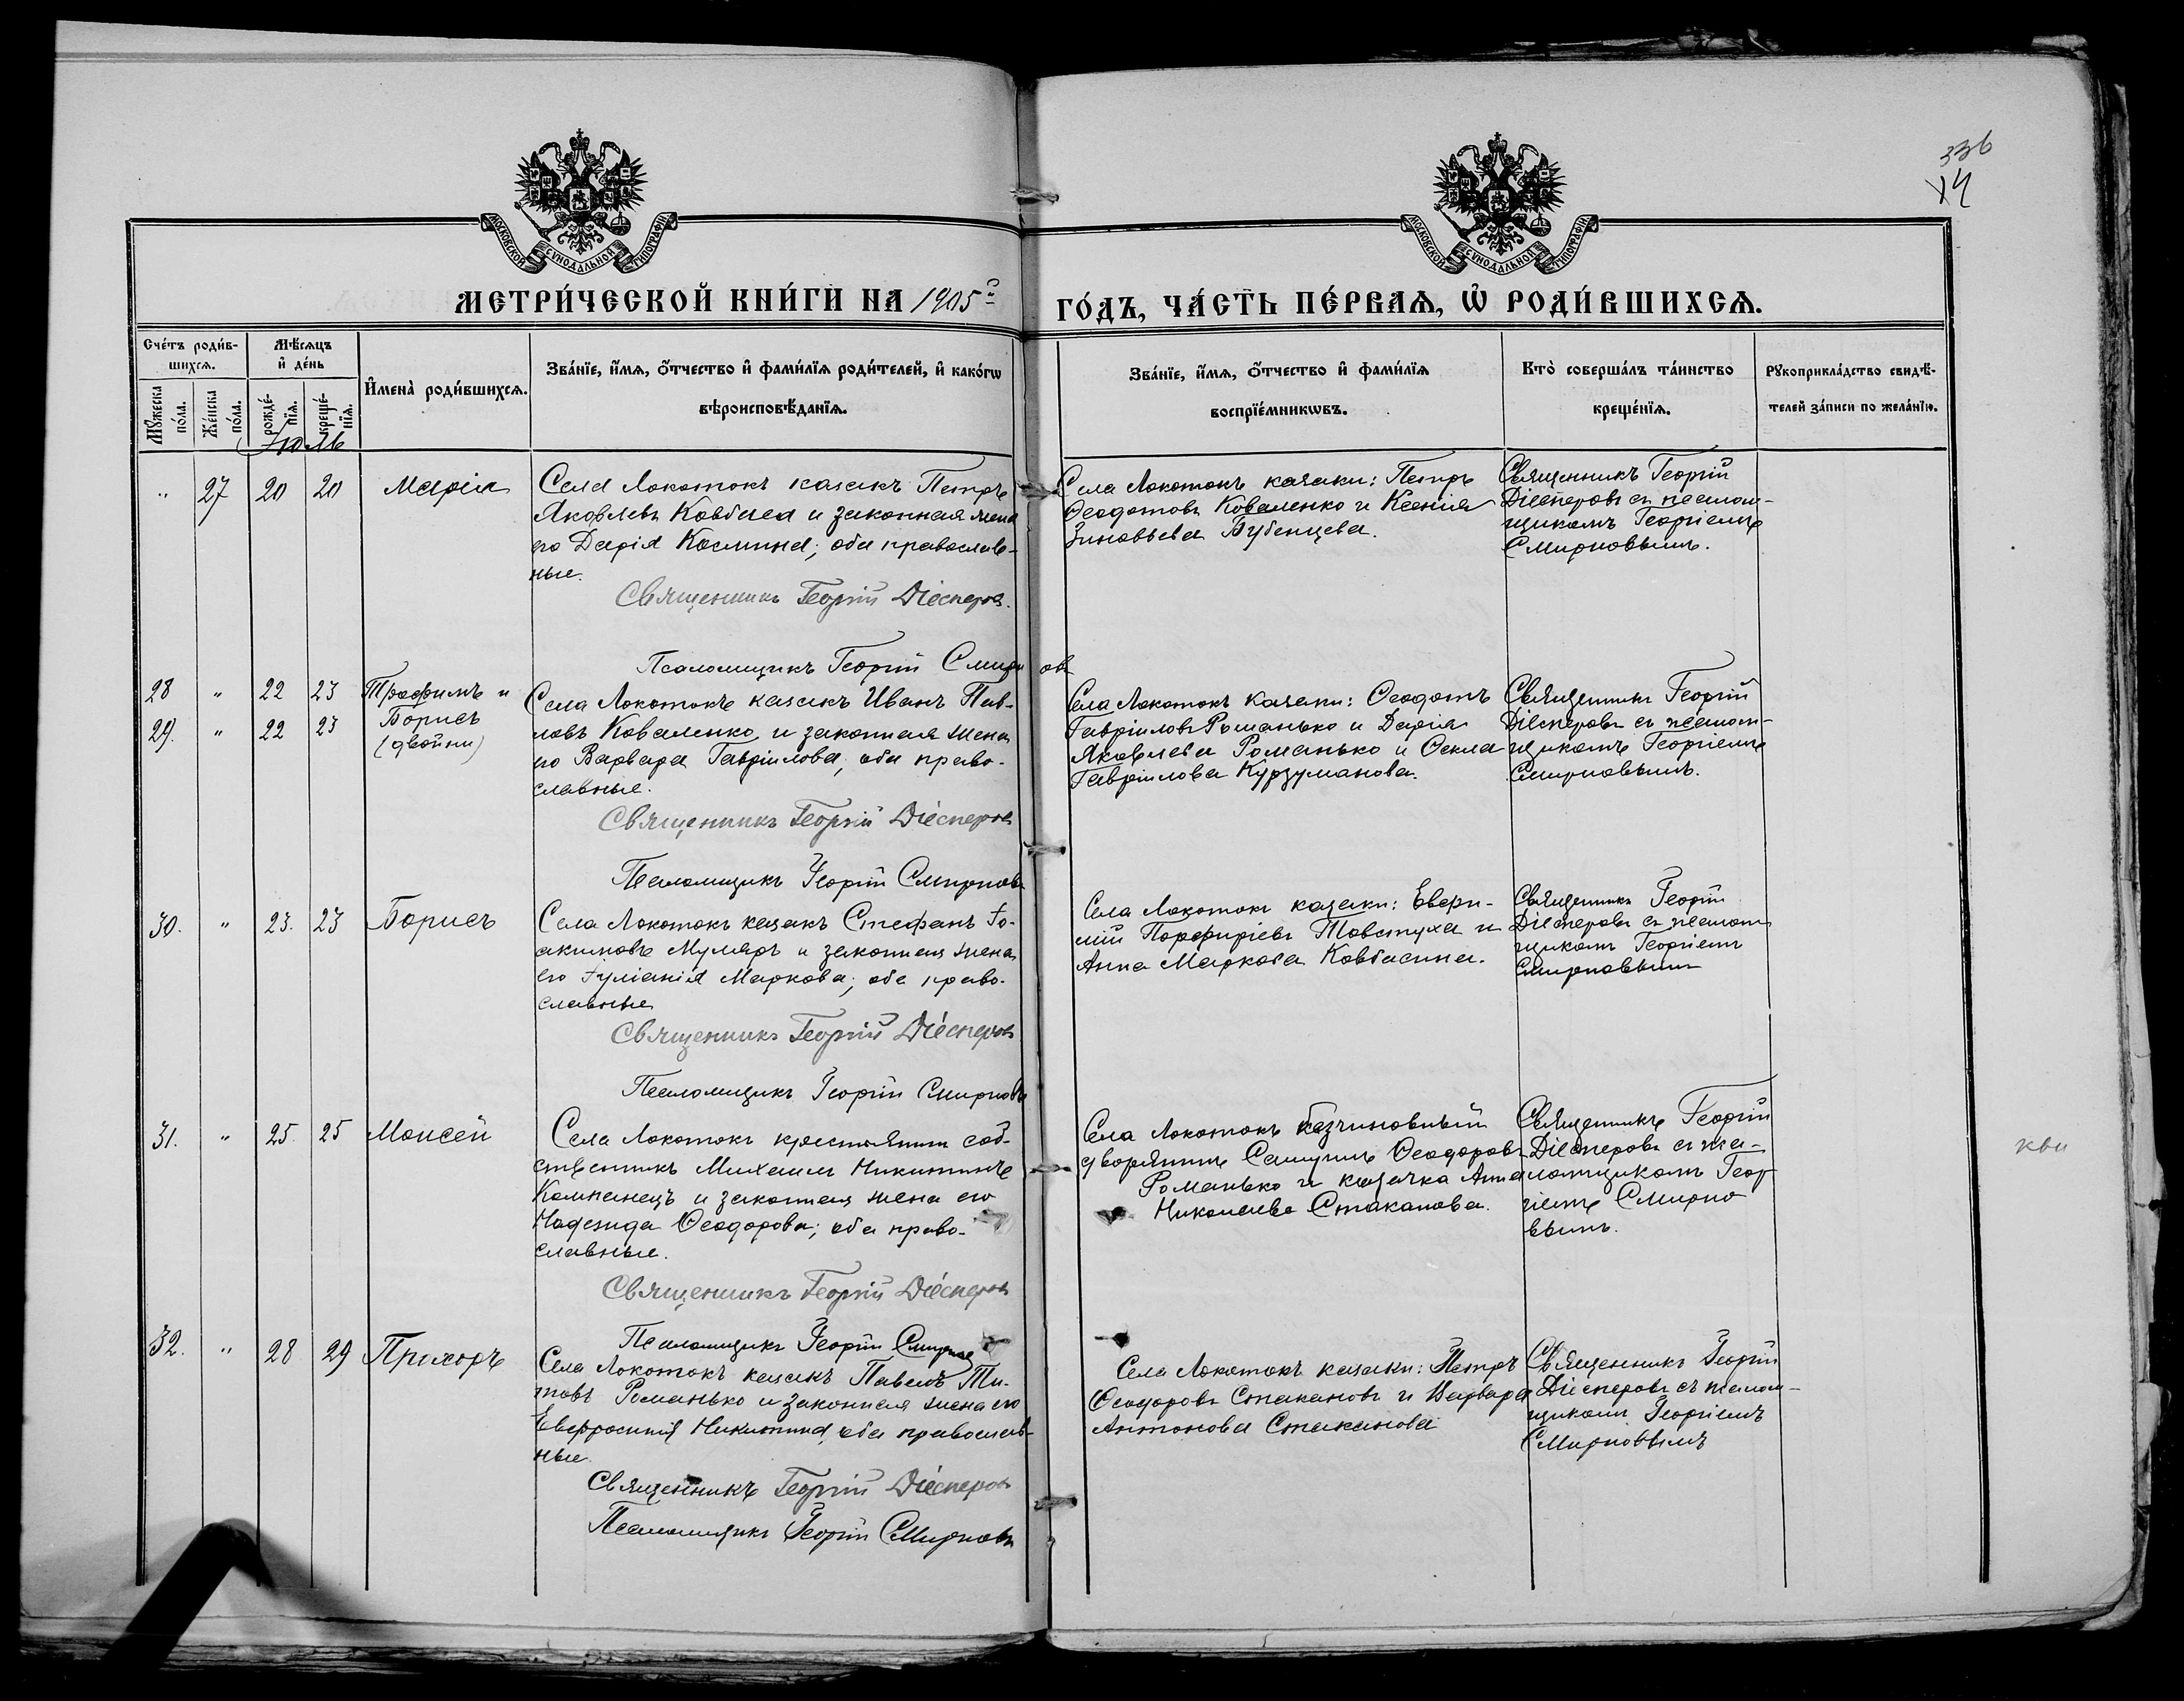 336
14
МОСКОВСКОЙ СѴНОДАЛЬНОЙ ТИПОГРАФІИ
МОСКОВСКОЙ СѴНОДАЛЬНОЙ ТИПОГРАФІИ
МЕТРИ́ЧЕСКОЙ КНИ́ГИ НА 1905й
ГО́ДЪ, ЧА́СТЬ ПЕ́РВАѦ, Ѡ҆ РОДИ́ВШИХСѦ.
Сче́тъ роди́в-
шихсѧ.
Мꙋ́жеска по́ла.
Же́нска по́ла.
Мѣ́сѧцъ
и҆ де́нь
рожде́-
нїѧ.
креще́-
нїѧ.
И҆мена̀ роди́вшихсѧ.
Зва́нїе, и҆́мѧ, ѻ҆́тчество и҆ фами́лїѧ роди́телей, и҆ како́гѡ
вѣроисповѣ́данїѧ.
Зва́нїе, и҆́мѧ, ѻ҆́тчество и҆ фами́лїѧ
воспрїе́мникѡвъ.
Кто̀ соверша́лъ та́инство
креще́нїѧ.
Рꙋкоприкла́дство свидѣ́-
телей за́писи по жела́нїю.
Іюль
" 27 20 20 Марія
Села Локотокъ казакъ Петръ
Яковлевъ Ковбаса и законная жена
его Дарія Космина; оба православ-
ные.
Священникъ Георгій Діесперов.
Псаломщикъ Георгій Смирновъ
Села Локотокъ казаки: Петръ
Ѳеодотовъ Коваленко и Ксенія
Зиновьева Бубенцева.
Священникъ Георгій
Діесперовъ съ псалом-
щикомъ Георгіемъ
Смирновымъ.
28 " 22 23 Трофимъ и
29. " 22 23 Борисъ
(двойни)
Села Локотокъ казакъ Иванъ Пав-
ловъ Коваленко и законная жена
его Варвара Гавріилова; оба право-
славные.
Священникъ Георгій Діесперов
Псаломщикъ Георгій Смирновъ
Села Локотокъ казаки: Ѳеодотъ
Гавріиловъ Романько и Дарія
Яковлева Романько и Ѳекла
Гавріилова Курзуманова.
Священникъ Георгій
Діесперовъ съ псалом-
щикомъ Георгіемъ
Смирновымъ.
30. " 23. 23 Борисъ
Села Локотокъ казакъ Стефанъ Іо-
акимовъ Муляръ и законная жена
его Іуліанія Маркова; оба право-
славные
Священникъ Георгій Діесперовъ
Псаломщикъ Георгій Смирновъ
Села Локотокъ казаки:
Порфиріевъ Товстуха и
Анна Маркова Ковбасина.
Священникъ Георгій
Діесперовъ съ псалом
щикомъ Георгіемъ
Смирновымъ
31. " 25. 25 Моисей
Села Локотокъ крестьянинъ соб-
ственникъ Михаилъ Никитинъ
Компанецъ и законная жена его
Надежда Ѳеодорова; оба право-
славные.
Священникъ Георгій Діесперов
Псаломщикъ Георгій Смирновъ
Села Локотокъ безчиновный
дворянинъ Самуилъ Ѳеодоровъ
Романько и казачка Анна
Николаева Стаканова.
Священникъ Георгій
Діесперовъ съ пса-
ломщикомъ Геор
гіемъ Смирно
вымъ.
32. " 28 29 Прохоръ
Села Локотокъ казакъ Павелъ Ти-
товъ Романько и законная жена его
Евфросинія Никитина; оба православ-
ные.
Священникъ Георгій Діесперов
Псаломщикъ Георгій Смирновъ
Села Локотокъ казаки: Петръ
Ѳеодоровъ Стакановъ и Варвара
Антонова Стаканова
Священникъ Георгій
Діесперовъ съ псалом-
щикомъ Георгіемъ
Смирновымъ